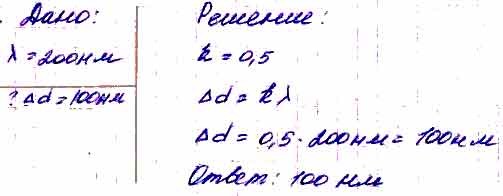 Дано:
λ = 200нм
? Δd = 100нм
Решение:
k = 0,5
Δd = kλ
Δd = 0,5 · 200нм = 100нм
Ответ: 100 нм